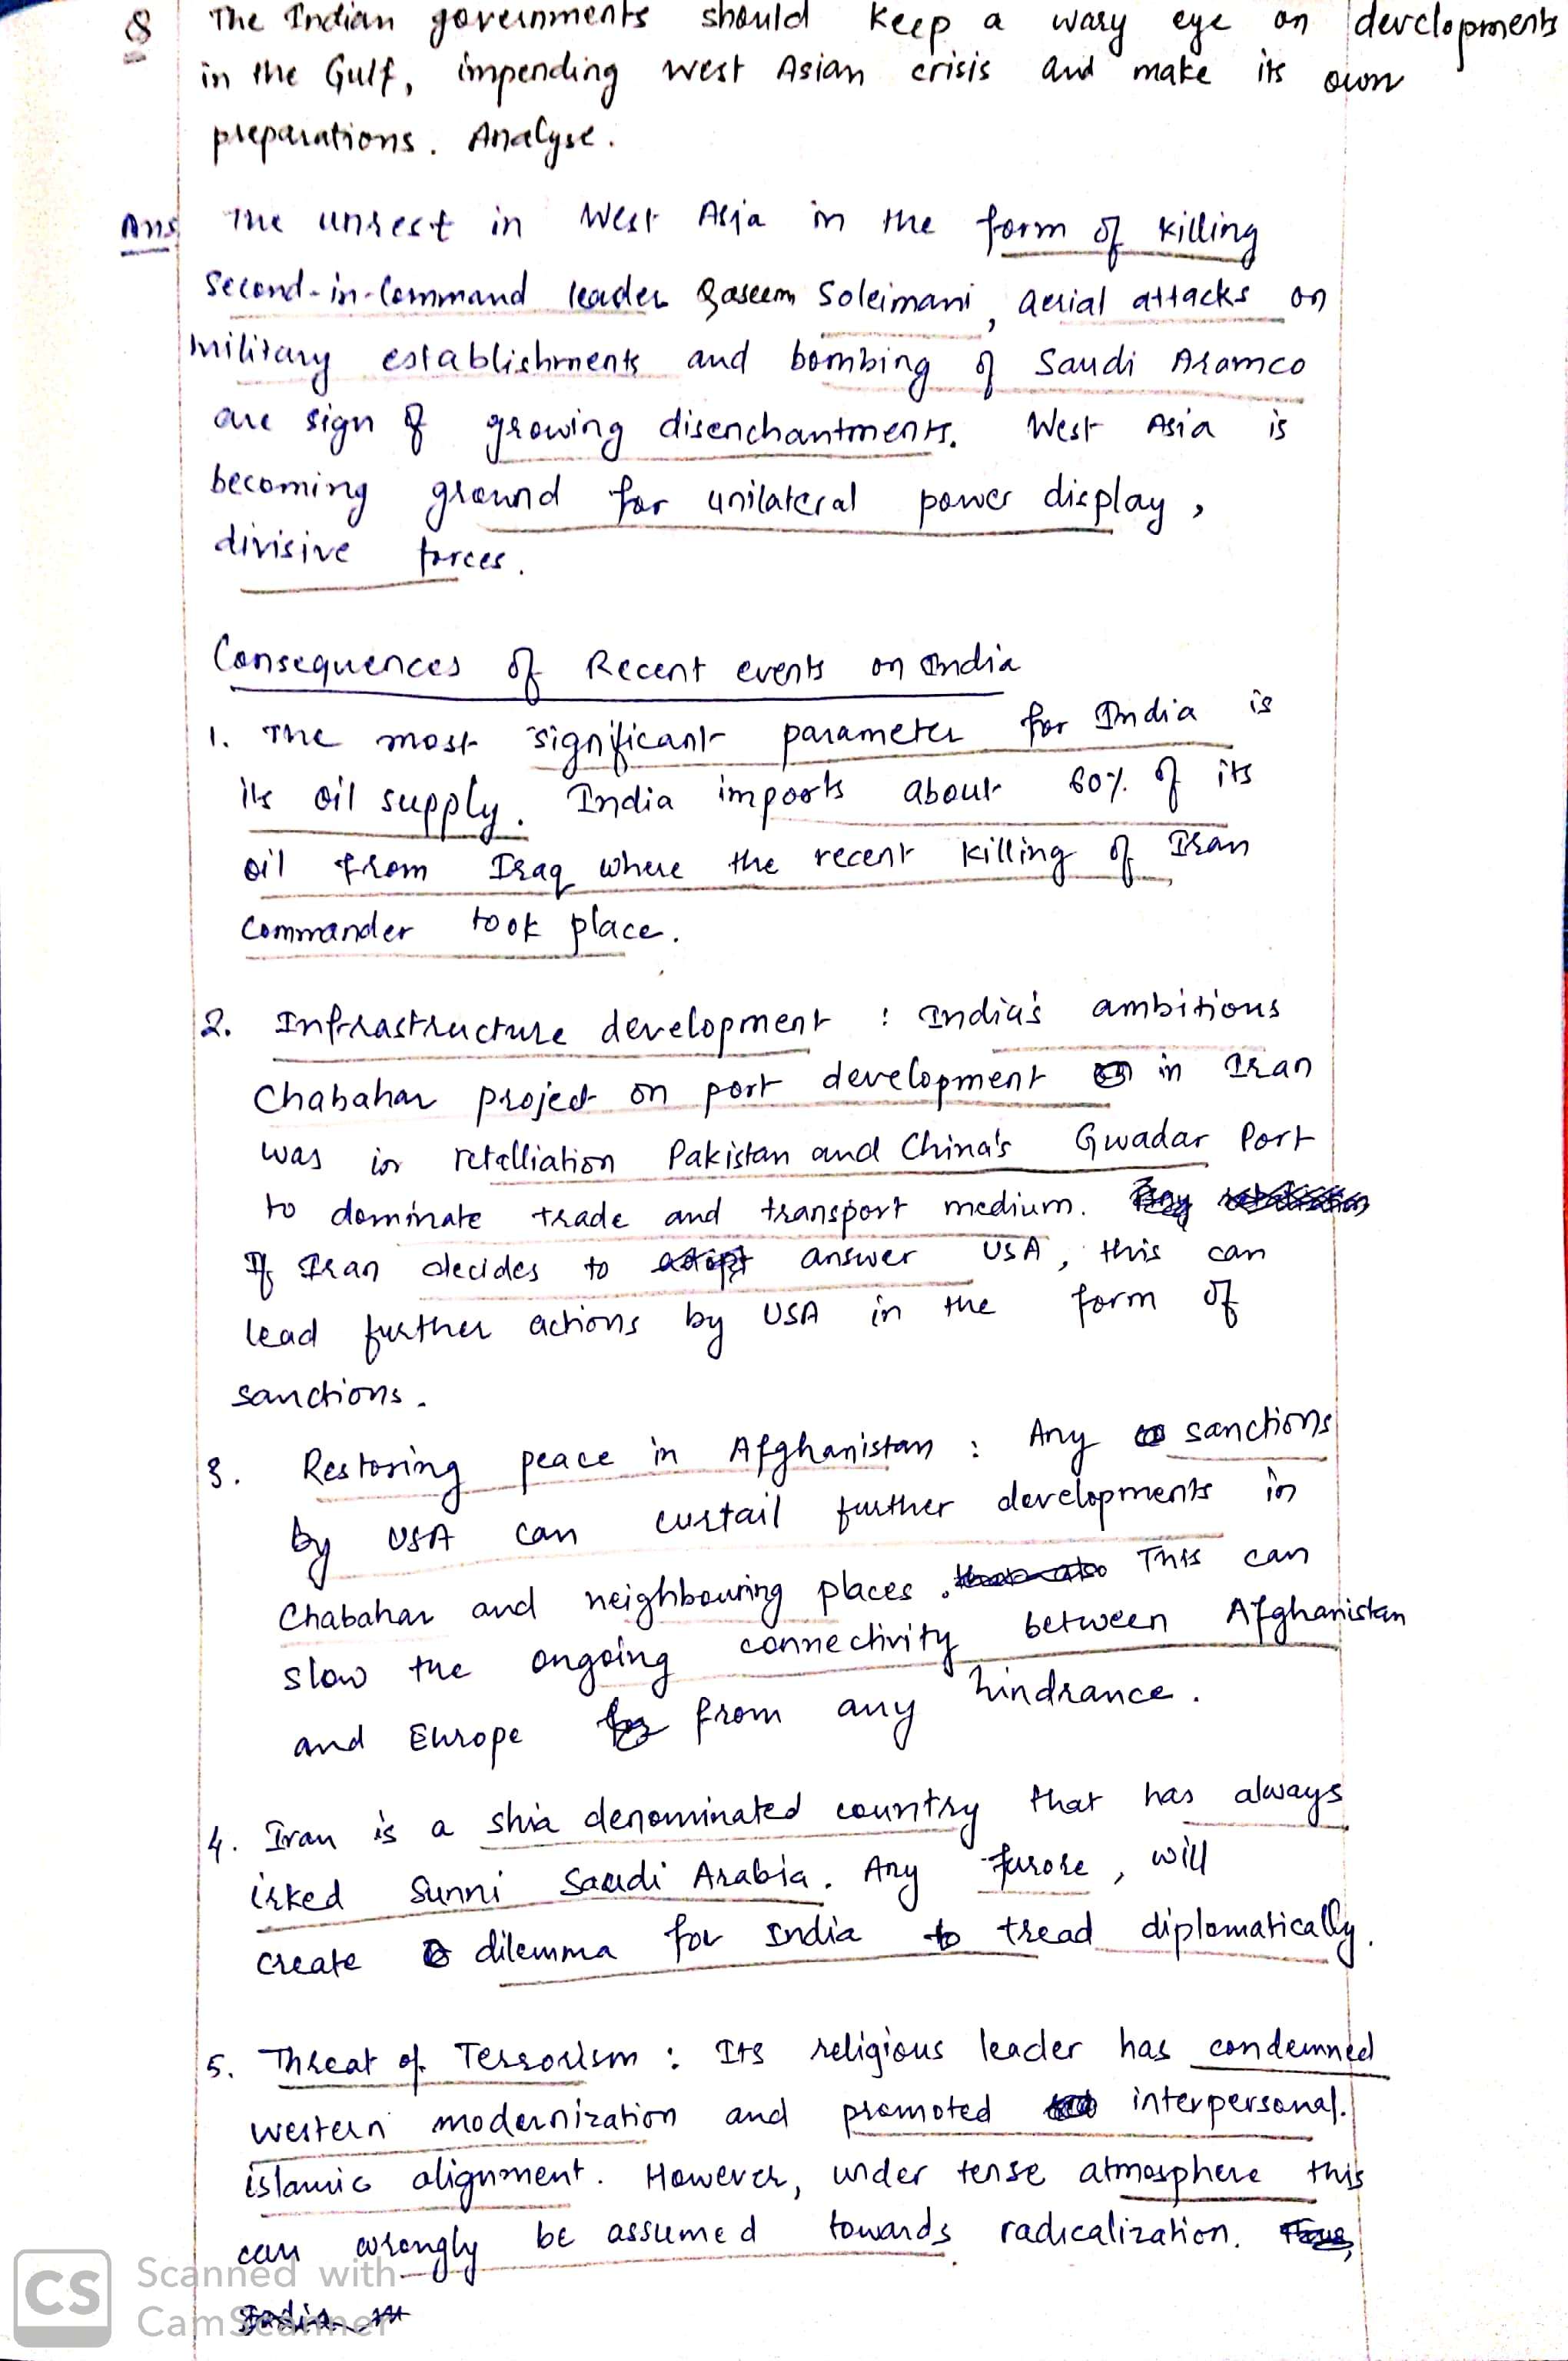 Q The Indian governments should keep a wary eye on developments
in the Gulf, impending west Asian crisis and make its own
preparations. Analyse.
Ans The unrest in West Asia in the form of killing
Second-in-Command leader Qaseem Soleimani, aerial attacks on
military establishments and bombing of Saudi Aramco
are sign of growing disenchantments. West Asia is
becoming ground for unilateral power display,
divisive forces.
Consequences of Recent events on India
1. The most significant parameter for India is
its oil supply. India imports about 60% of its
oil from Iraq where the recent killing of Iran
Commander took place.
2. Infrastructure development : India's ambitions
Chabahar project on port development in Iran
was in retalliation Pakistan and China's Gwadar Port
to dominate trade and transport medium.
If Iran decides to answer USA, this can
lead further actions by USA in the form of
sanctions.
3. Restoring peace in Afghanistan : Any sanctions
by USA can curtail further developments in
Chabahar and neighbouring places. This can
slow the ongoing connectivity between Afghanistan
and Europe from any hindrance.
4. Iran is a shia denominated country that has always
irked Sunni Saudi Arabia. Any furore, will
create dilemma for India to tread diplomatically.
5. Threat of Terrorism : Its religious leader has condemned
western modernization and promoted interpersonal
islamic alignment. However, under tense atmosphere this
can wrongly be assumed towards radicalization.
India
CS Scanned with
CamScanner